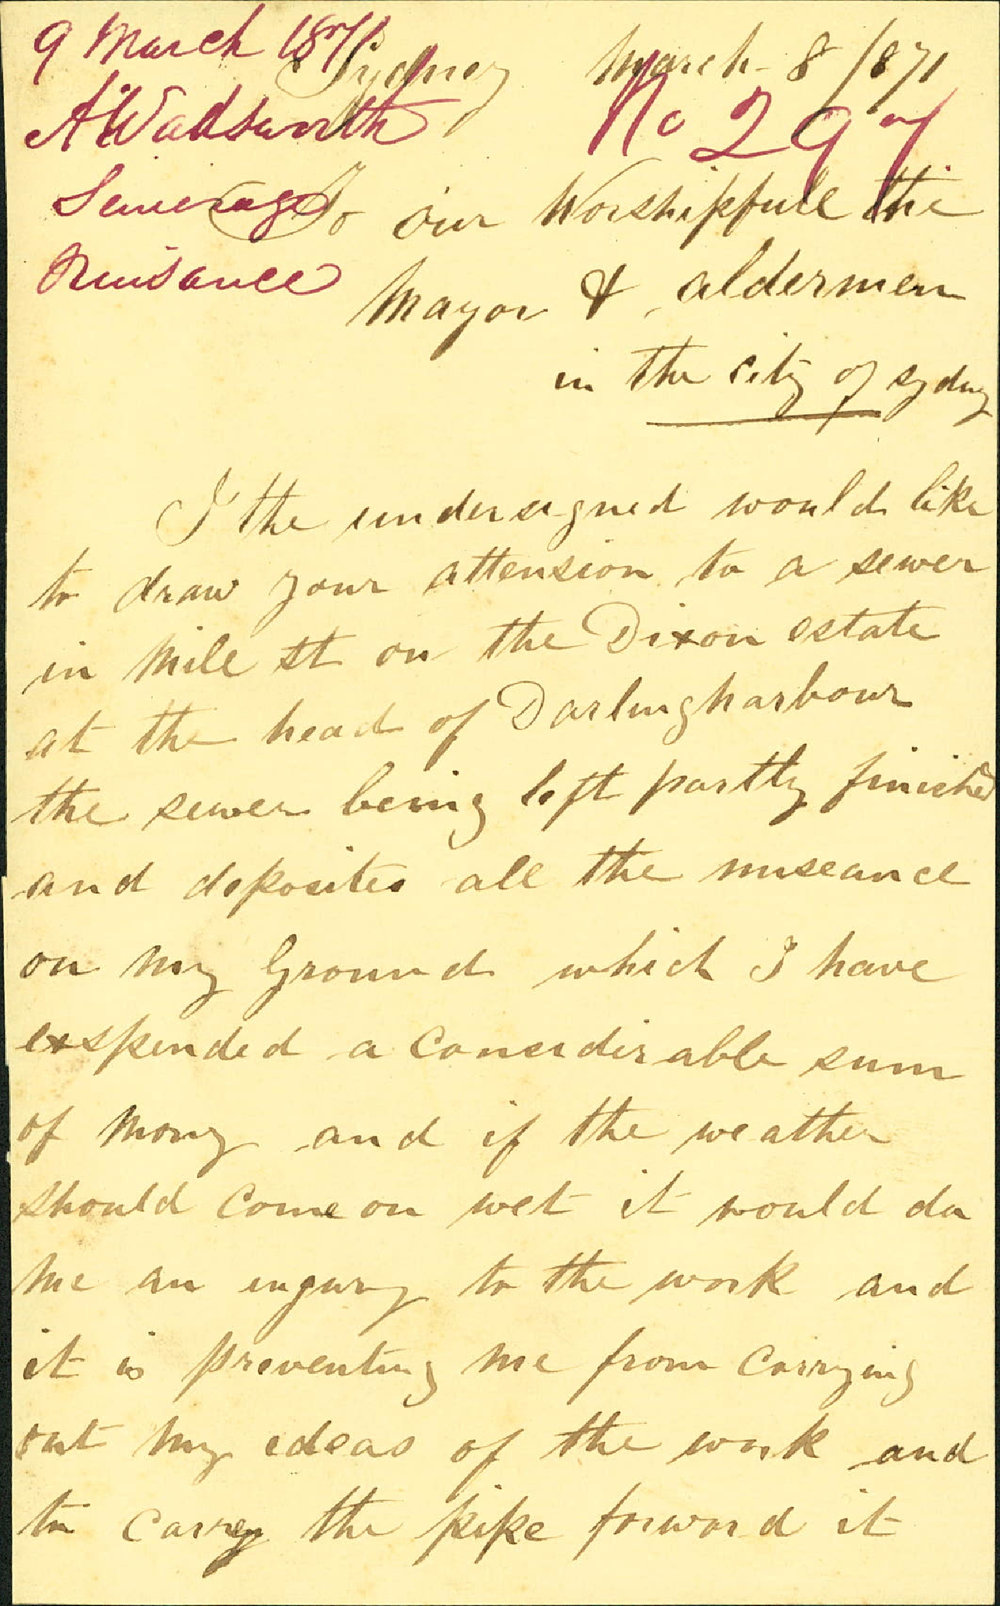 9 March 1871
A Wadsworth
Sewerage
Nuisance
No 297
Sydney March 8 /871
To our Worshipfull the
Mayor & aldermen
in the city of sydny
I the undersigned would like
to draw your attension to a sewer
in Mile st on the Dixon estate
at the head of Darlingharbour
the sewer being left partly finished
and deposites all the nuseance
on my Ground which I have
exspended a Conciderable sum
of Mony and if the weather
should Come on wet it would do
me an ingury to the work and
it is preventing me from Carrying
out my ideas of the work and
to Carrey the pipe forward it